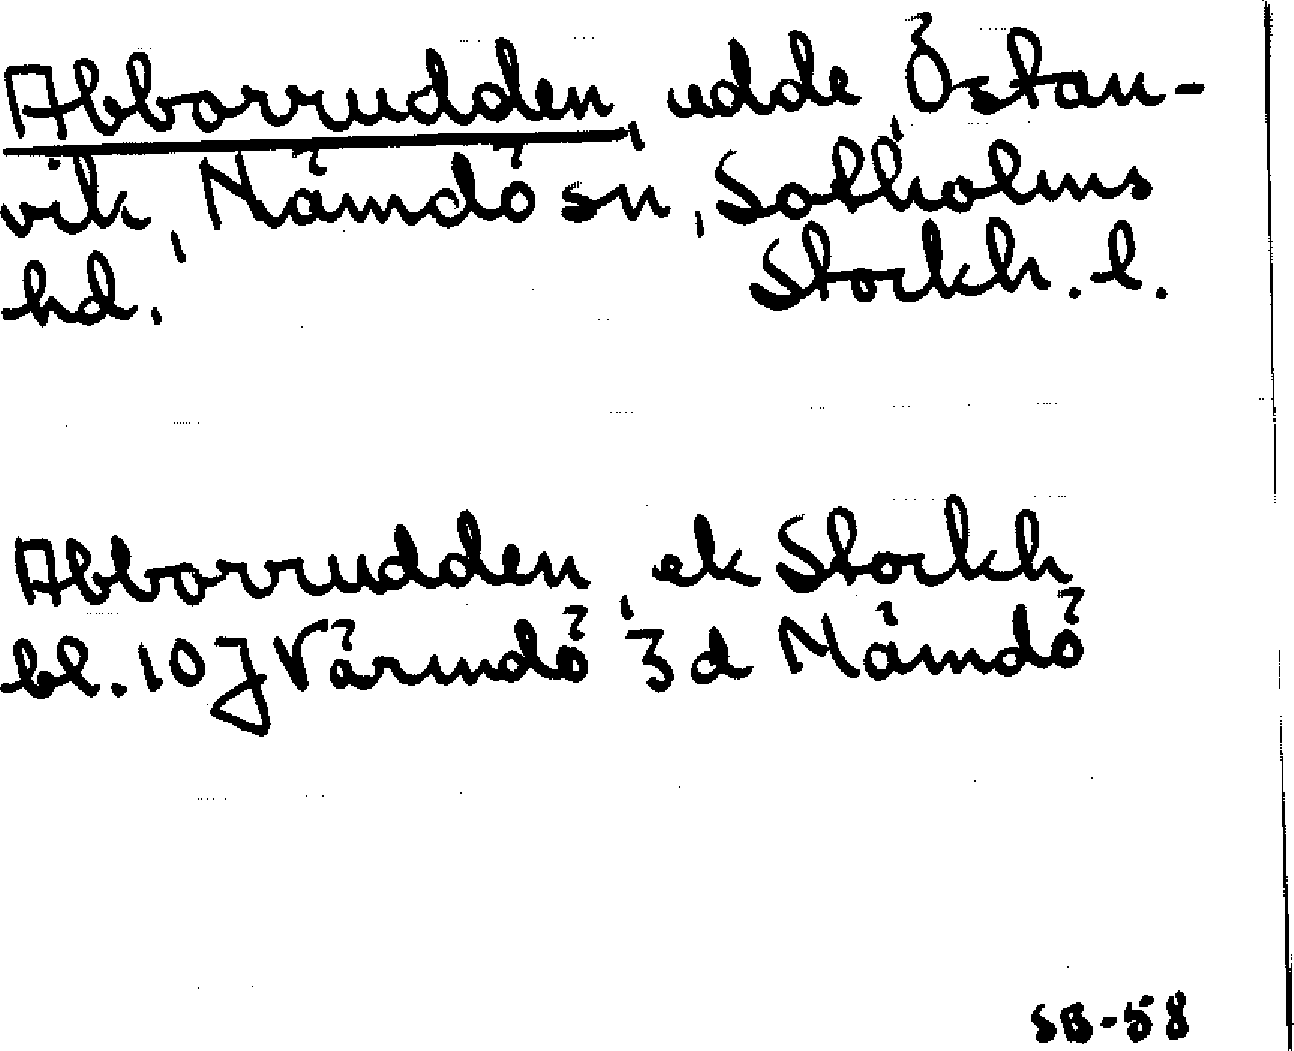 Abborrudden, udde, Östan-
vik, Nämdö sn, Sotholms
hd. Stockh. l.
Abborrudden, ek Stockh
bl. 10 J Värmdö 3d Nämdö
SB-58